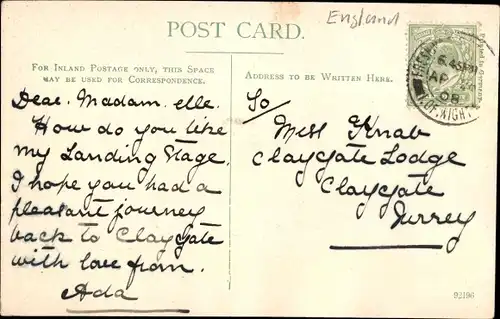 England
POST CARD.
FOR INLAND POSTAGE ONLY, THIS SPACE
MAY BE USED FOR CORRESPONDENCE.
ADDRESS TO BE WRITTEN HERE.
6.45PM
AP
08
I.OF.WIGHT
Dear. Madam. elle.
How do you like
my Landing Stage.
I hope you had a
pleasant journey
back to Claygate
with love from.
Ada
To
Miss Knab
Claygate Lodge
Claygate
Surrey
92196